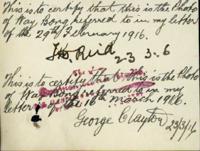 This is to certify that this is the Photo
of Way Bong referred to in my letter
of the 29th February 1916.
Reid
23.3.6
This is to certify that this is the Photo
of Way Bong referred to in my
letter of the 16th March 1916.
George Clayton
23/3/16